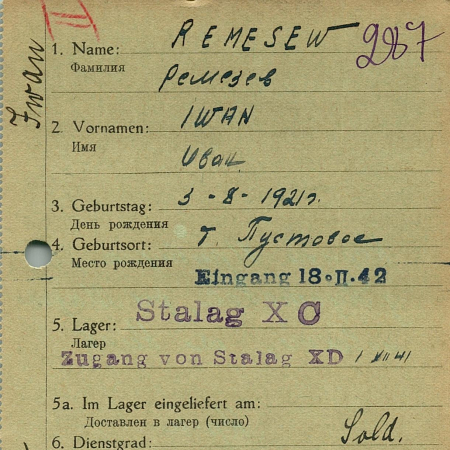 II
Iwan
287
1. Name: REMESEW
Фамилия
Ремезев
2. Vornamen: IWAN
Имя
Иван
3. Geburtstag: 3-8-1921г.
День рождения
4. Geburtsort: т. Пустовое
Место рождения
Eingang 18.II.42
Stalag X C
5. Lager:
Лагерь
Zugang von Stalag XD 1 XII 41
5a. Im Lager eingeliefert am:
Доставлен в лагерь (число)
6. Dienstgrad: Sold.